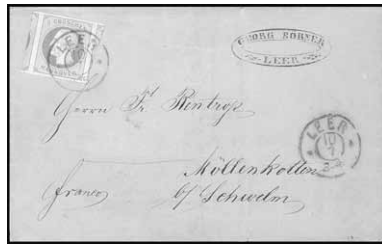 LEER
GEORG BORNER
LEER
Herrn Fr. Rentrop
LEER
10
7
Möllenkotten
franco
b/ Schwelm